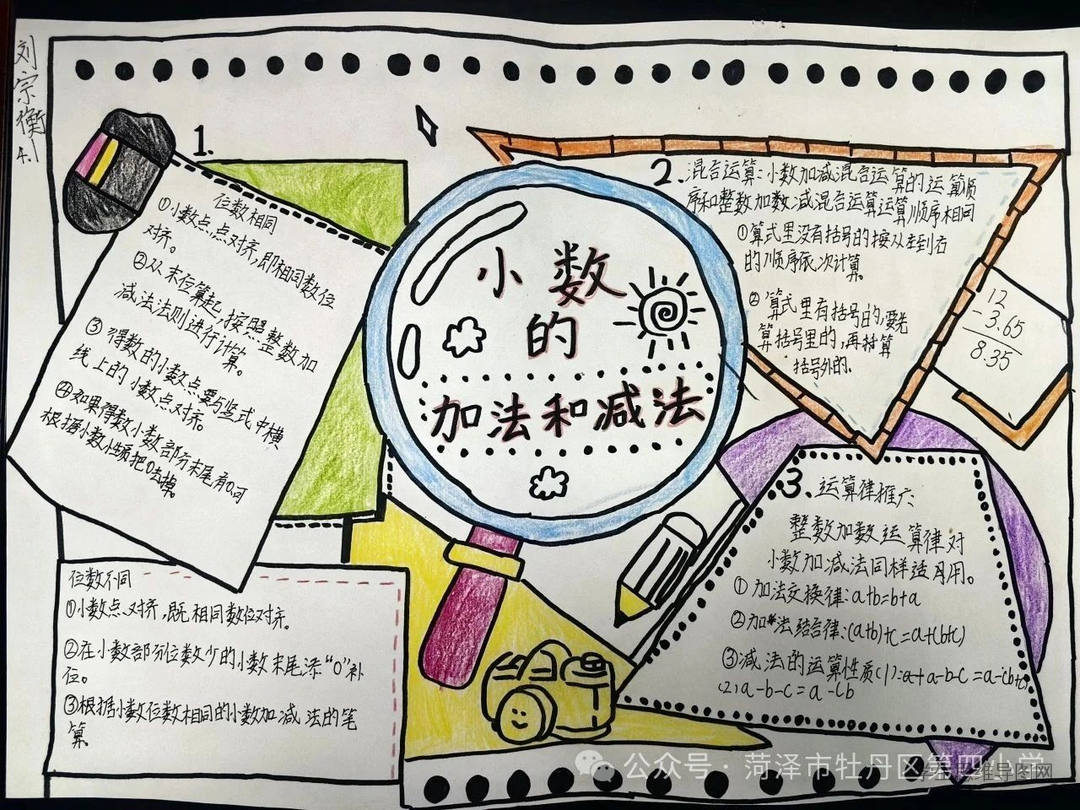 刘宗衡
4.1
1.
位数相同
①小数点,点对齐,即相同数位
对齐。
②从末位算起,按照整数加
减法法则进行计算。
③得数的小数点要与竖式中横
线上的小数点对齐。
④如果得数小数部分末尾有0,可
根据小数性质把0去掉。
位数不同
①小数点对齐,既相同数位对齐。
②在小数部分位数少的小数末尾添“0”补
位。
③根据小数位数相同的小数加减法的笔
算
小数
的
加法和减法
2.混合运算:小数加减混合运算的运算顺
序和整数加数减混合运算运算顺序相同
①算式里没有括号的按从左到右
的顺序依次计算。
②算式里有括号的,要先
算括号里的,再括算
括号外的.
12
-3.65
8.35
3、运算律推广:
整数加数运算律对
小数加减法同样适用。
①加法交换律:a+b=b+a
②加法结合律:(a+b)+c=a+(b+c)
③减法的运算性质(1):a+a-b-c=a-(b+c)
(2)a-b-c=a-cb
公众号·菏泽市牡丹区第四小学
思维导图网